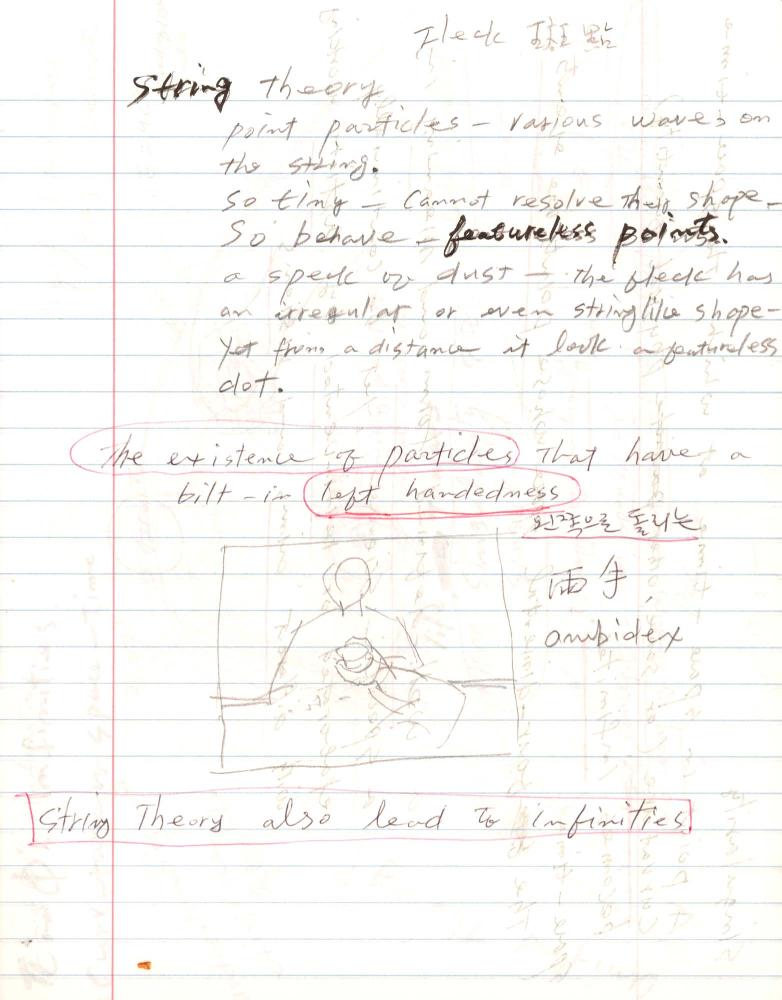 Fleck 點
String theory
point particles - various waves on
the string.
so tiny - Cannot resolve their shape -
So behave - featureless points.
a speck of dust - the fleck has
an irregular or even stringlike shape -
Yet from a distance it look a featureless
dot.
The existence of particles That have a
bilt-in left handedness
왼쪽으로 돌리는
両手,
ambidex
String Theory also lead to infinities